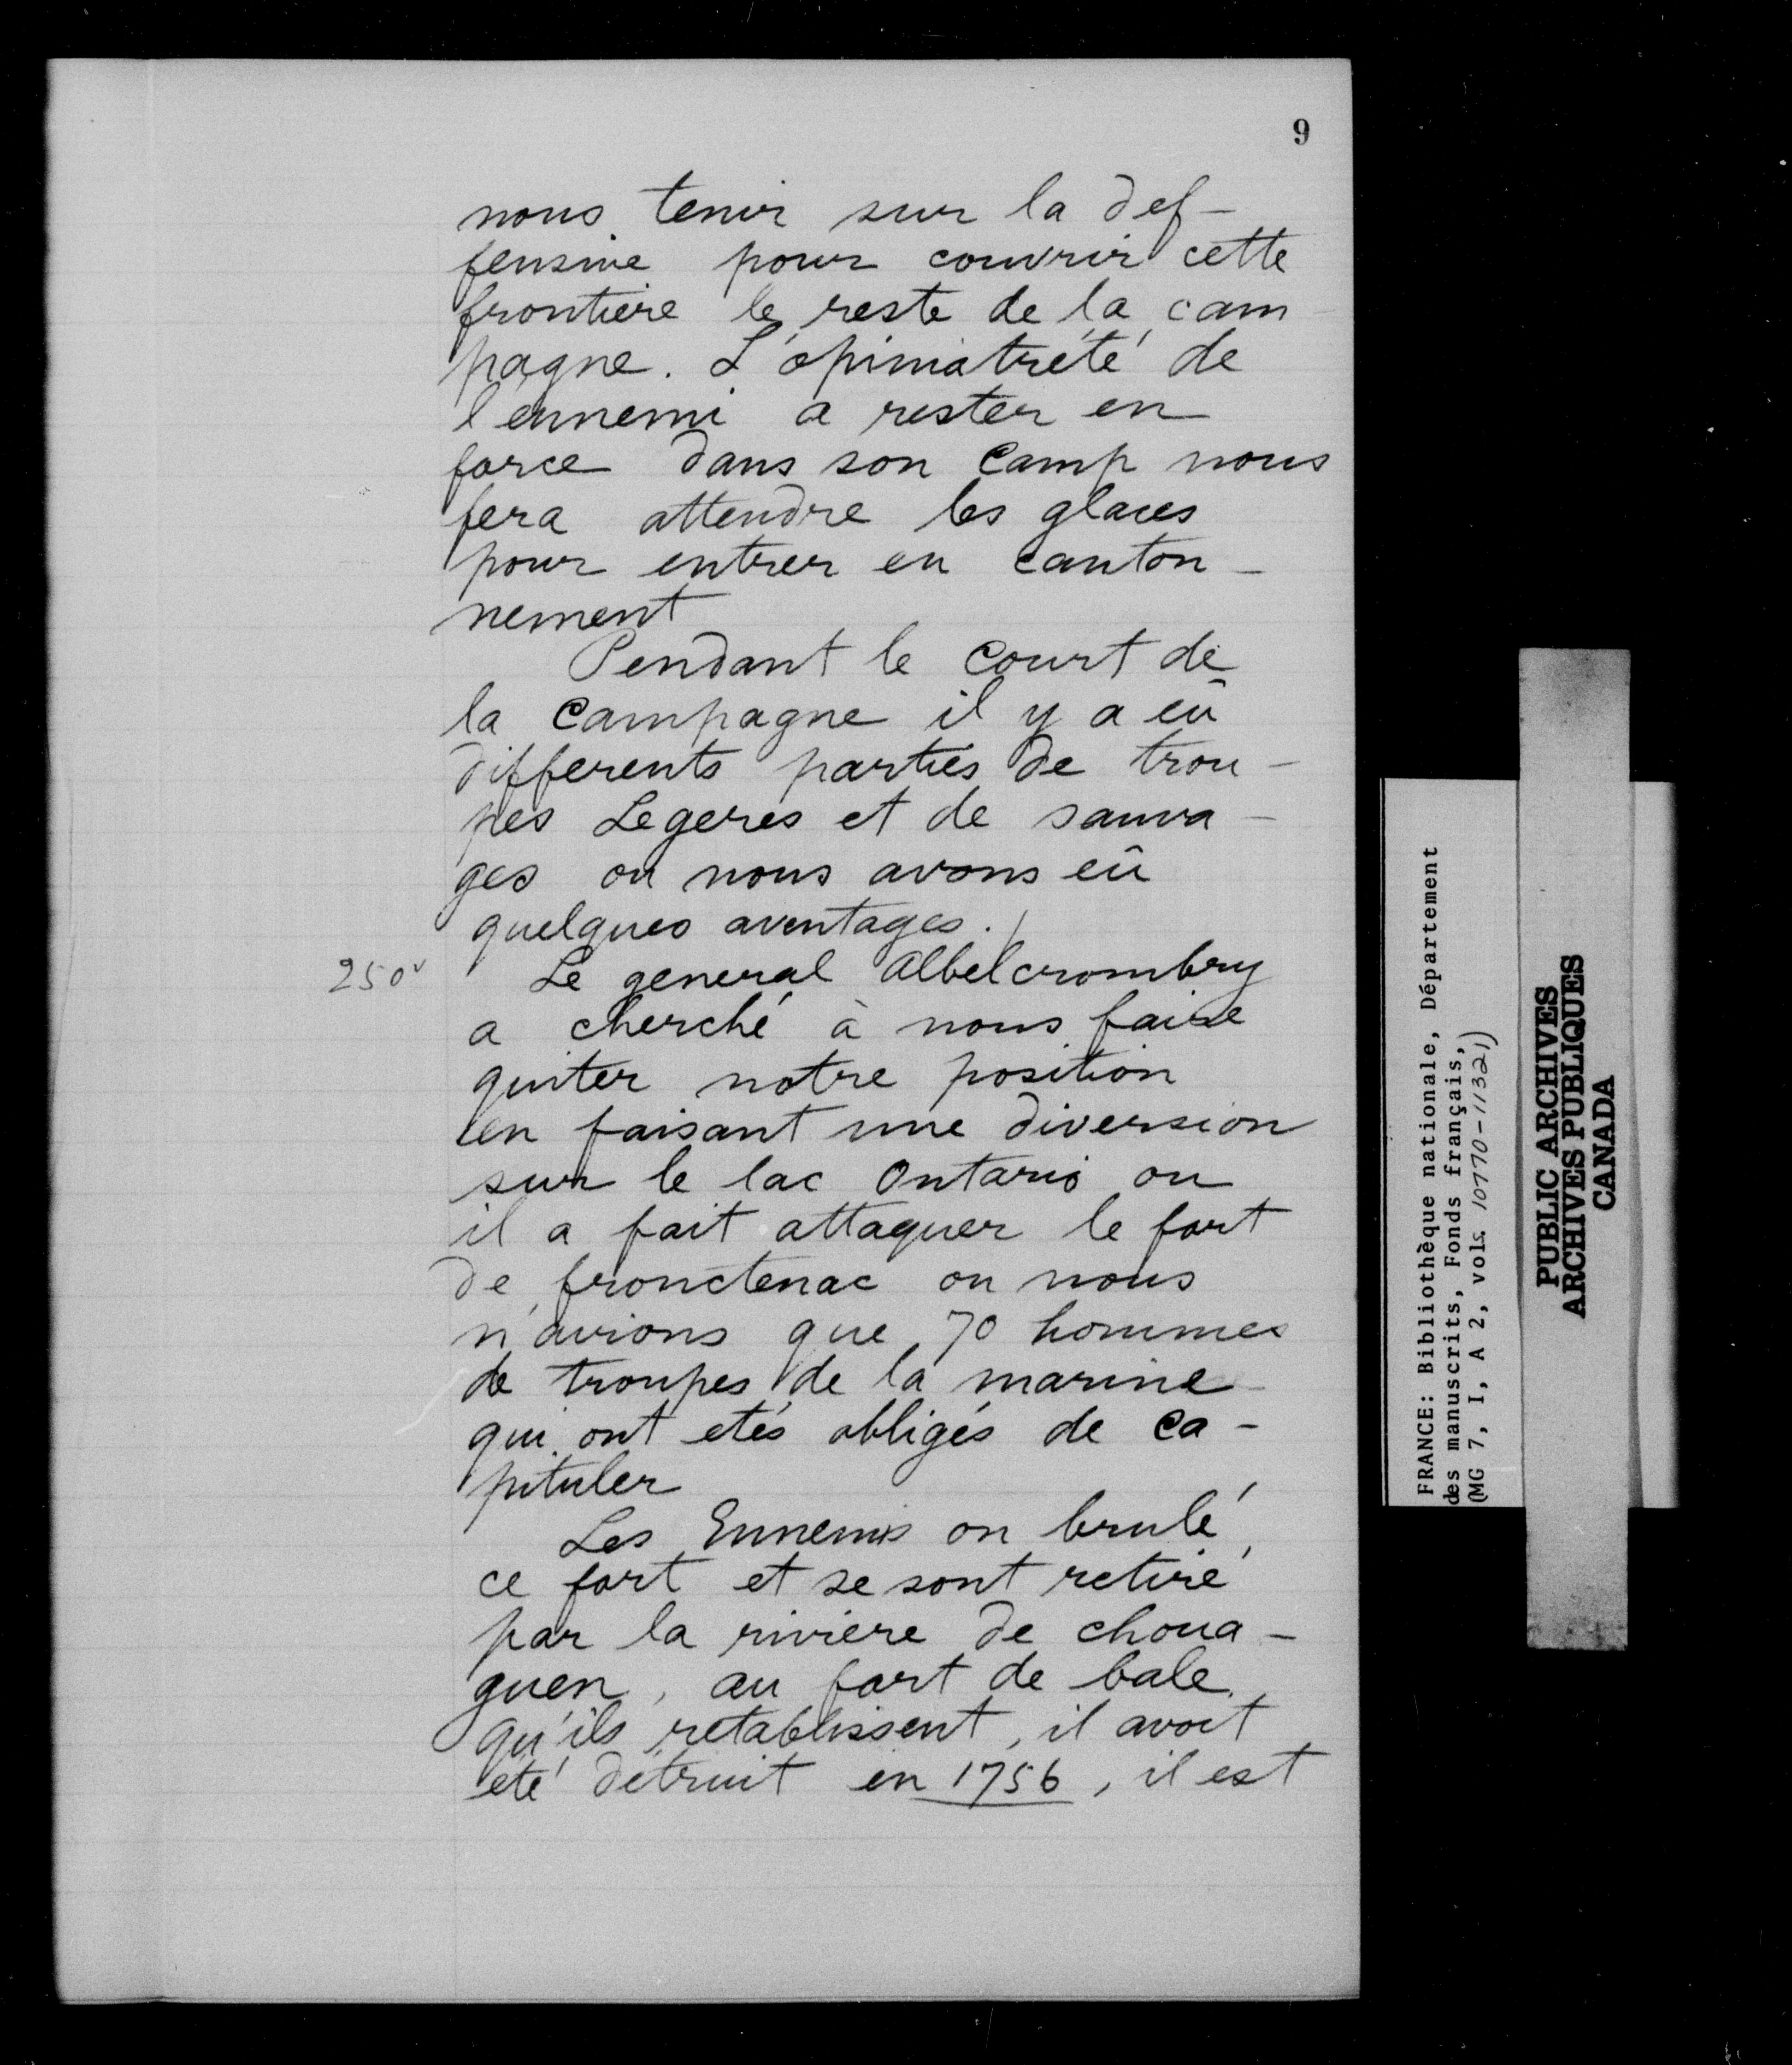 9
nous tenir sur la def-
fensive pour couvrir cette
frontiere le reste de la cam
pagne. L'opiniatrété de
l'ennemi a rester en
force dans son camp nous
fera attendre les glaces
pour entrer en canton-
nement
Pendant le court de
la campagne il y a eû
differents partiés de trou-
pes Legeres et de sauva-
ges ou nous avons eû
quelques aventages./
250v Le general Albelcrombry
a cherché à nous faire
quiter notre position
en faisant une diversion
sur le lac Ontario ou
il a fait attaquer le fort
de fronctenac ou nous
n'avions que 70 hommes
de troupes de la marine
qui ont etés obligés de ca-
pituler
Les Ennemis on brulé
ce fort et se sont retiré
par la riviere de choua-
guen, au fort de bale
qu'ils retablissent, il avoit
eté détruit en 1756, il est
FRANCE: Bibliothèque nationale, Département
des manuscrits, Fonds français,
(MG 7, I, A 2, vols. 10770-11321)
PUBLIC ARCHIVES
ARCHIVES PUBLIQUES
CANADA